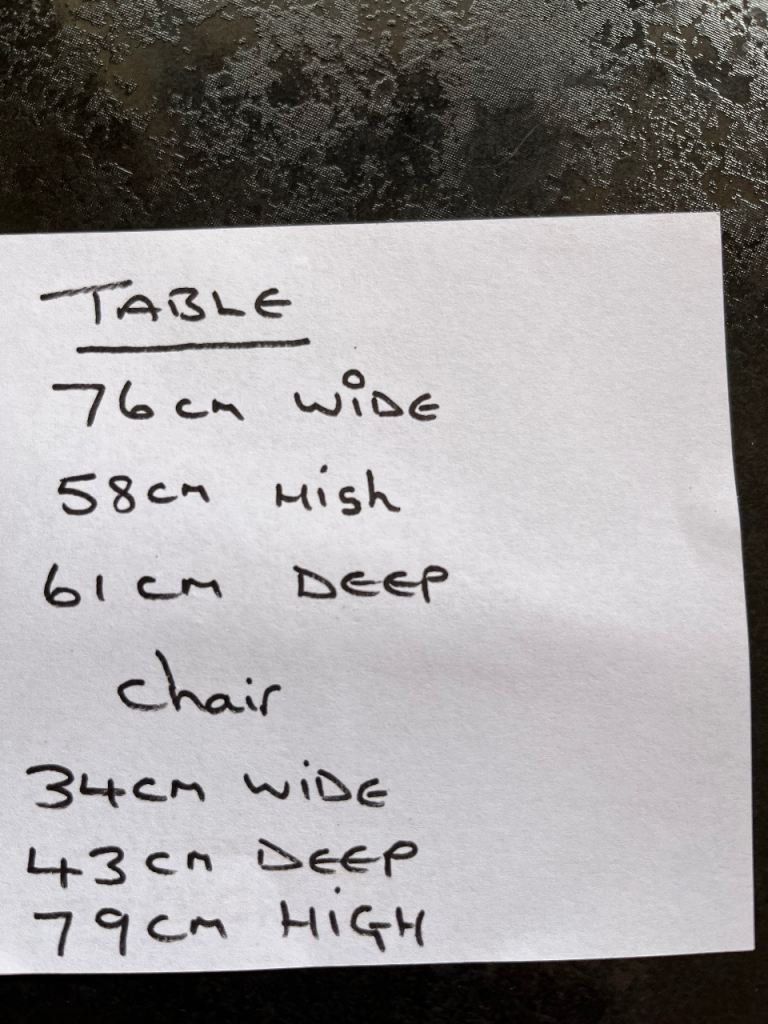 TABLE
76cm WiDE
58cm High
61cm DEEP
chair
34cm WiDE
43cm DEEP
79cm HiGH